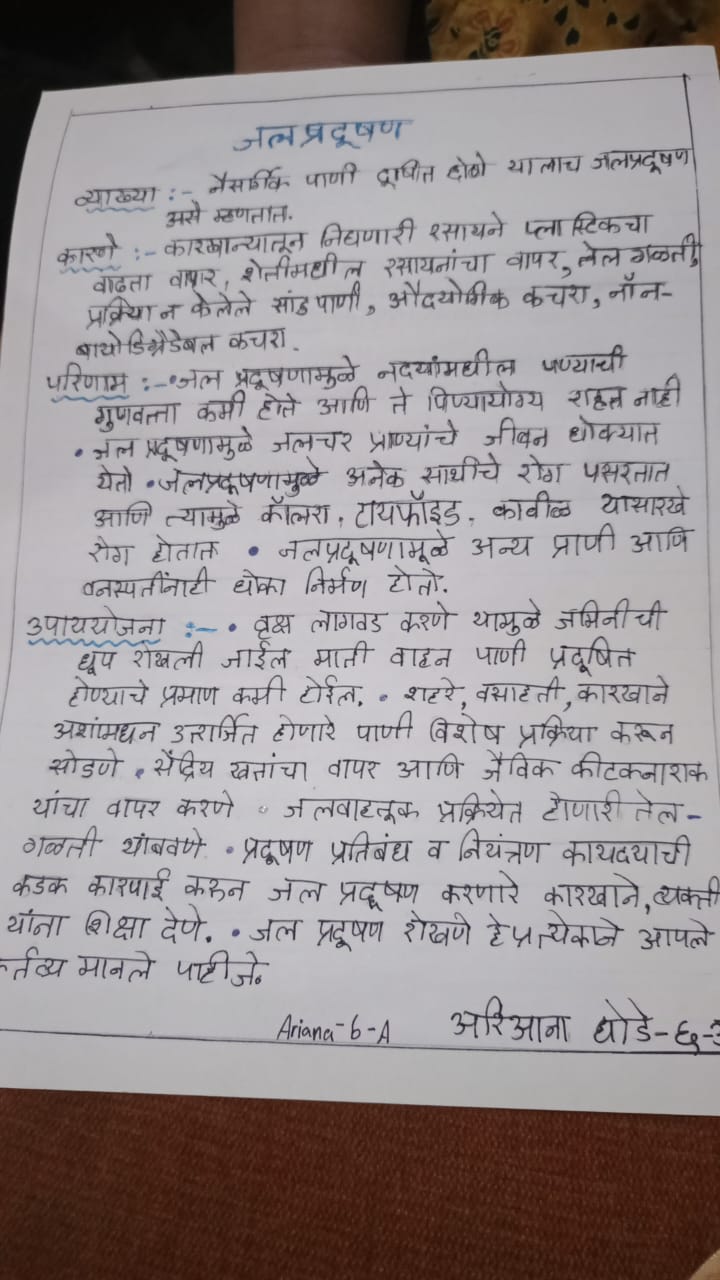 जलप्रदूषण
व्याख्या :- नैसर्गिक पाणी दूषित होणे यालाच जलप्रदूषण
असे म्हणतात.
कारणे :- कारखान्यातून निघणारी रसायने प्लास्टिकचा
वाढता वापर, शेतीमधील रसायनांचा वापर, तेल गळती,
प्रक्रिया न केलेले सांडपाणी, औदयोगिक कचरा, नॉन-
बायोडिग्रेडेबल कचरा.
परिणाम :- • जल प्रदूषणामुळे नदयांमधील पण्याची
गुणवत्ता कमी होते आणि ते पिण्यायोग्य राहत नाही
• जल प्रदूषणामुळे जलचर प्राण्यांचे जीवन धोक्यात
येतो • जलप्रदूषणामुळे अनेक साथीचे रोग पसरतात
आणि त्यामुळे कॉलरा, टायफॉइड, कावीळ यासारखे
रोग होतात • जलप्रदूषणामूळे अन्य प्राणी आणि
वनस्पतींनाही धोका निर्मण होतो.
उपाययोजना :- • वृक्ष लागवड करणे यामुळे जमिनीची
धूप रोखली जाईल माती वाहन पाणी प्रदूषित
होण्याचे प्रमाण कमी होईल. • शहरे, वसाहती, कारखाने
अशांमधन उत्सर्जित होणारे पाणी विशेष प्रक्रिया करून
सोडणे • सेंद्रिय खतांचा वापर आणि जैविक कीटकनाशक
यांचा वापर करणे • जलवाहतूक प्रक्रियेत होणारी तेल-
गळती थांबवणे • प्रदूषण प्रतिबंध व नियंत्रण कायदयाची
कडक कारवाई करून जल प्रदूषण करणारे कारखाने, व्यक्ती
यांना शिक्षा देणे. • जल प्रदूषण रोखणे हे प्रत्येकाने आपले
कर्तव्य मानले पाहीजे.
Ariana-6-A अरिआना घोडे-६-अ